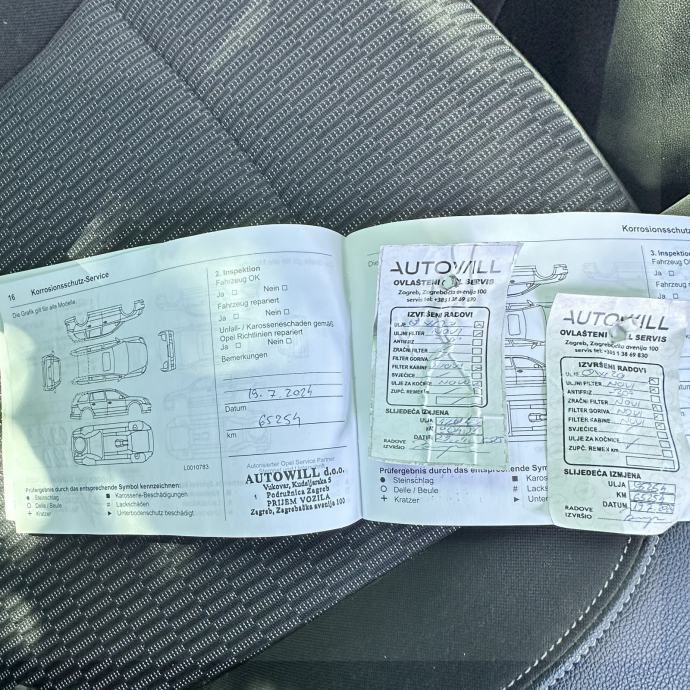 16 Korrosionsschutz-Service
Die Grafik gilt für alle Modelle.
L0010783
Prüfergebnis durch das entsprechende Symbol kennzeichnen:
● Steinschlag
■ Karosserie-Beschädigungen
○ Delle / Beule
# Lackschäden
+ Kratzer
► Unterbodenschutz beschädigt
2. Inspektion
Fahrzeug OK
Ja □ Nein □
Fahrzeug repariert
Ja □ Nein □
Unfall-/ Karosserieschaden gemäß
Opel Richtlinien repariert
Ja □ Nein □
Bemerkungen
19.7.2024
Datum
65254
km
Autorisierter Opel Service Partner
AUTOWILL d.o.o.
Vukovar, Kudeljarska 5
Podružnica Zagreb
PRIJEM VOZILA
Zagreb, Zagrebačka avenija 100
Korrosionsschutz
Die
3. Inspektion
Fahrzeug OK
Ja
Fahrzeug
Ja
AUTOWILL
OVLAŠTENI SERVIS
Zagreb, Zagrebačka avenija 100
IZVRŠENI RADOVI
ULJE
ULJNI FILTER
ANTIFRIZ
ZRAČNI FILTER
FILTER GORIVA
FILTER KABINE
SVJEĆICE
ULJE ZA KOČNICE
ZUPČ. REMEN
SLIJEDEĆA IZMJENA
ULJA
KM
DATUM
RADOVE
IZVRŠIO
Prüfergebnis durch das entsprechende Sym
● Steinschlag
■ Karos
○ Delle / Beule
# Lacks
+ Kratzer
► Unter
AUTOWILL
OVLAŠTENI SERVIS
Zagreb, Zagrebačka avenija 100
servis tel: +385 1 38 69 830
IZVRŠENI RADOVI
ULJE
ULJNI FILTER NOVI
ANTIFRIZ
ZRAČNI FILTER NOVI
FILTER GORIVA NOVI
FILTER KABINE NOVI
SVJEĆICE
ULJE ZA KOČNICE
ZUPČ. REMEN km
SLIJEDEĆA IZMJENA
ULJA
KM
DATUM
RADOVE
IZVRŠIO